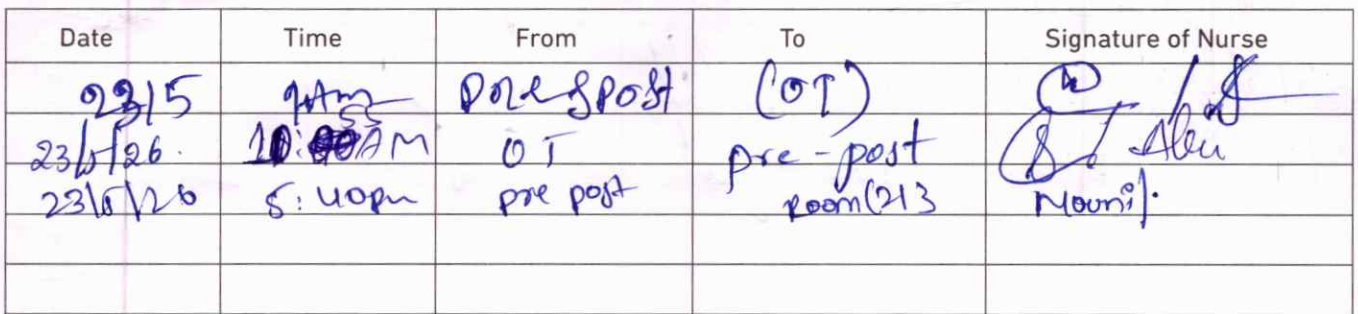 Date Time From To Signature of Nurse
23/5 9Am pre & post (OT)
23/5/26. 10:55 AM OT pre-post
23/5/26 5:40pm pre post Room(213 Mouni